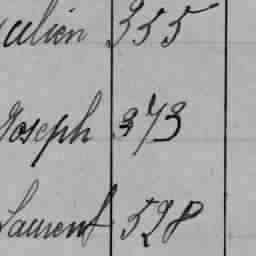 Julien 355
Joseph 373
Laurent 528